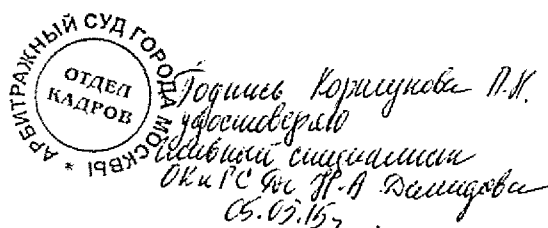 АРБИТРАЖНЫЙ СУД ГОРОДА МОСКВЫ *
ОТДЕЛ
КАДРОВ
Подпись Коршунова П.Н.
удостоверяю
Главный специалист
ОК и ГС Н.А Демидова
05.05.15г.